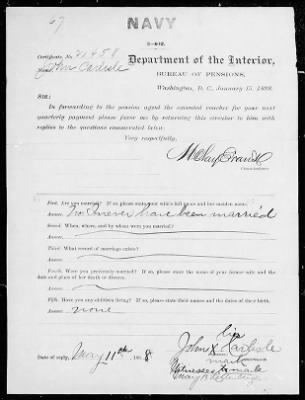 NAVY
3-402.
Certificate No. 21458
Name, John Carlisle
Department of the Interior,
BUREAU OF PENSIONS,
Washington, D. C., January 15, 1898.
SIR:
In forwarding to the pension agent the executed voucher for your next
quarterly payment please favor me by returning this circular to him with
replies to the questions enumerated below.
Very respectfully,
H Clay Evans
Commissioner.
First. Are you married? If so, please state your wife's full name and her maiden name.
Answer. No I never have been married
Second. When, where, and by whom were you married?
Answer.
Third. What record of marriage exists?
Answer.
Fourth. Were you previously married? If so, please state the name of your former wife and the
date and place of her death or divorce.
Answer.
Fifth. Have you any children living? If so, please state their names and the dates of their birth.
Answer. none
Date of reply, May 11th, 1898
his
John X Carlisle
mark
Witnesses to mark